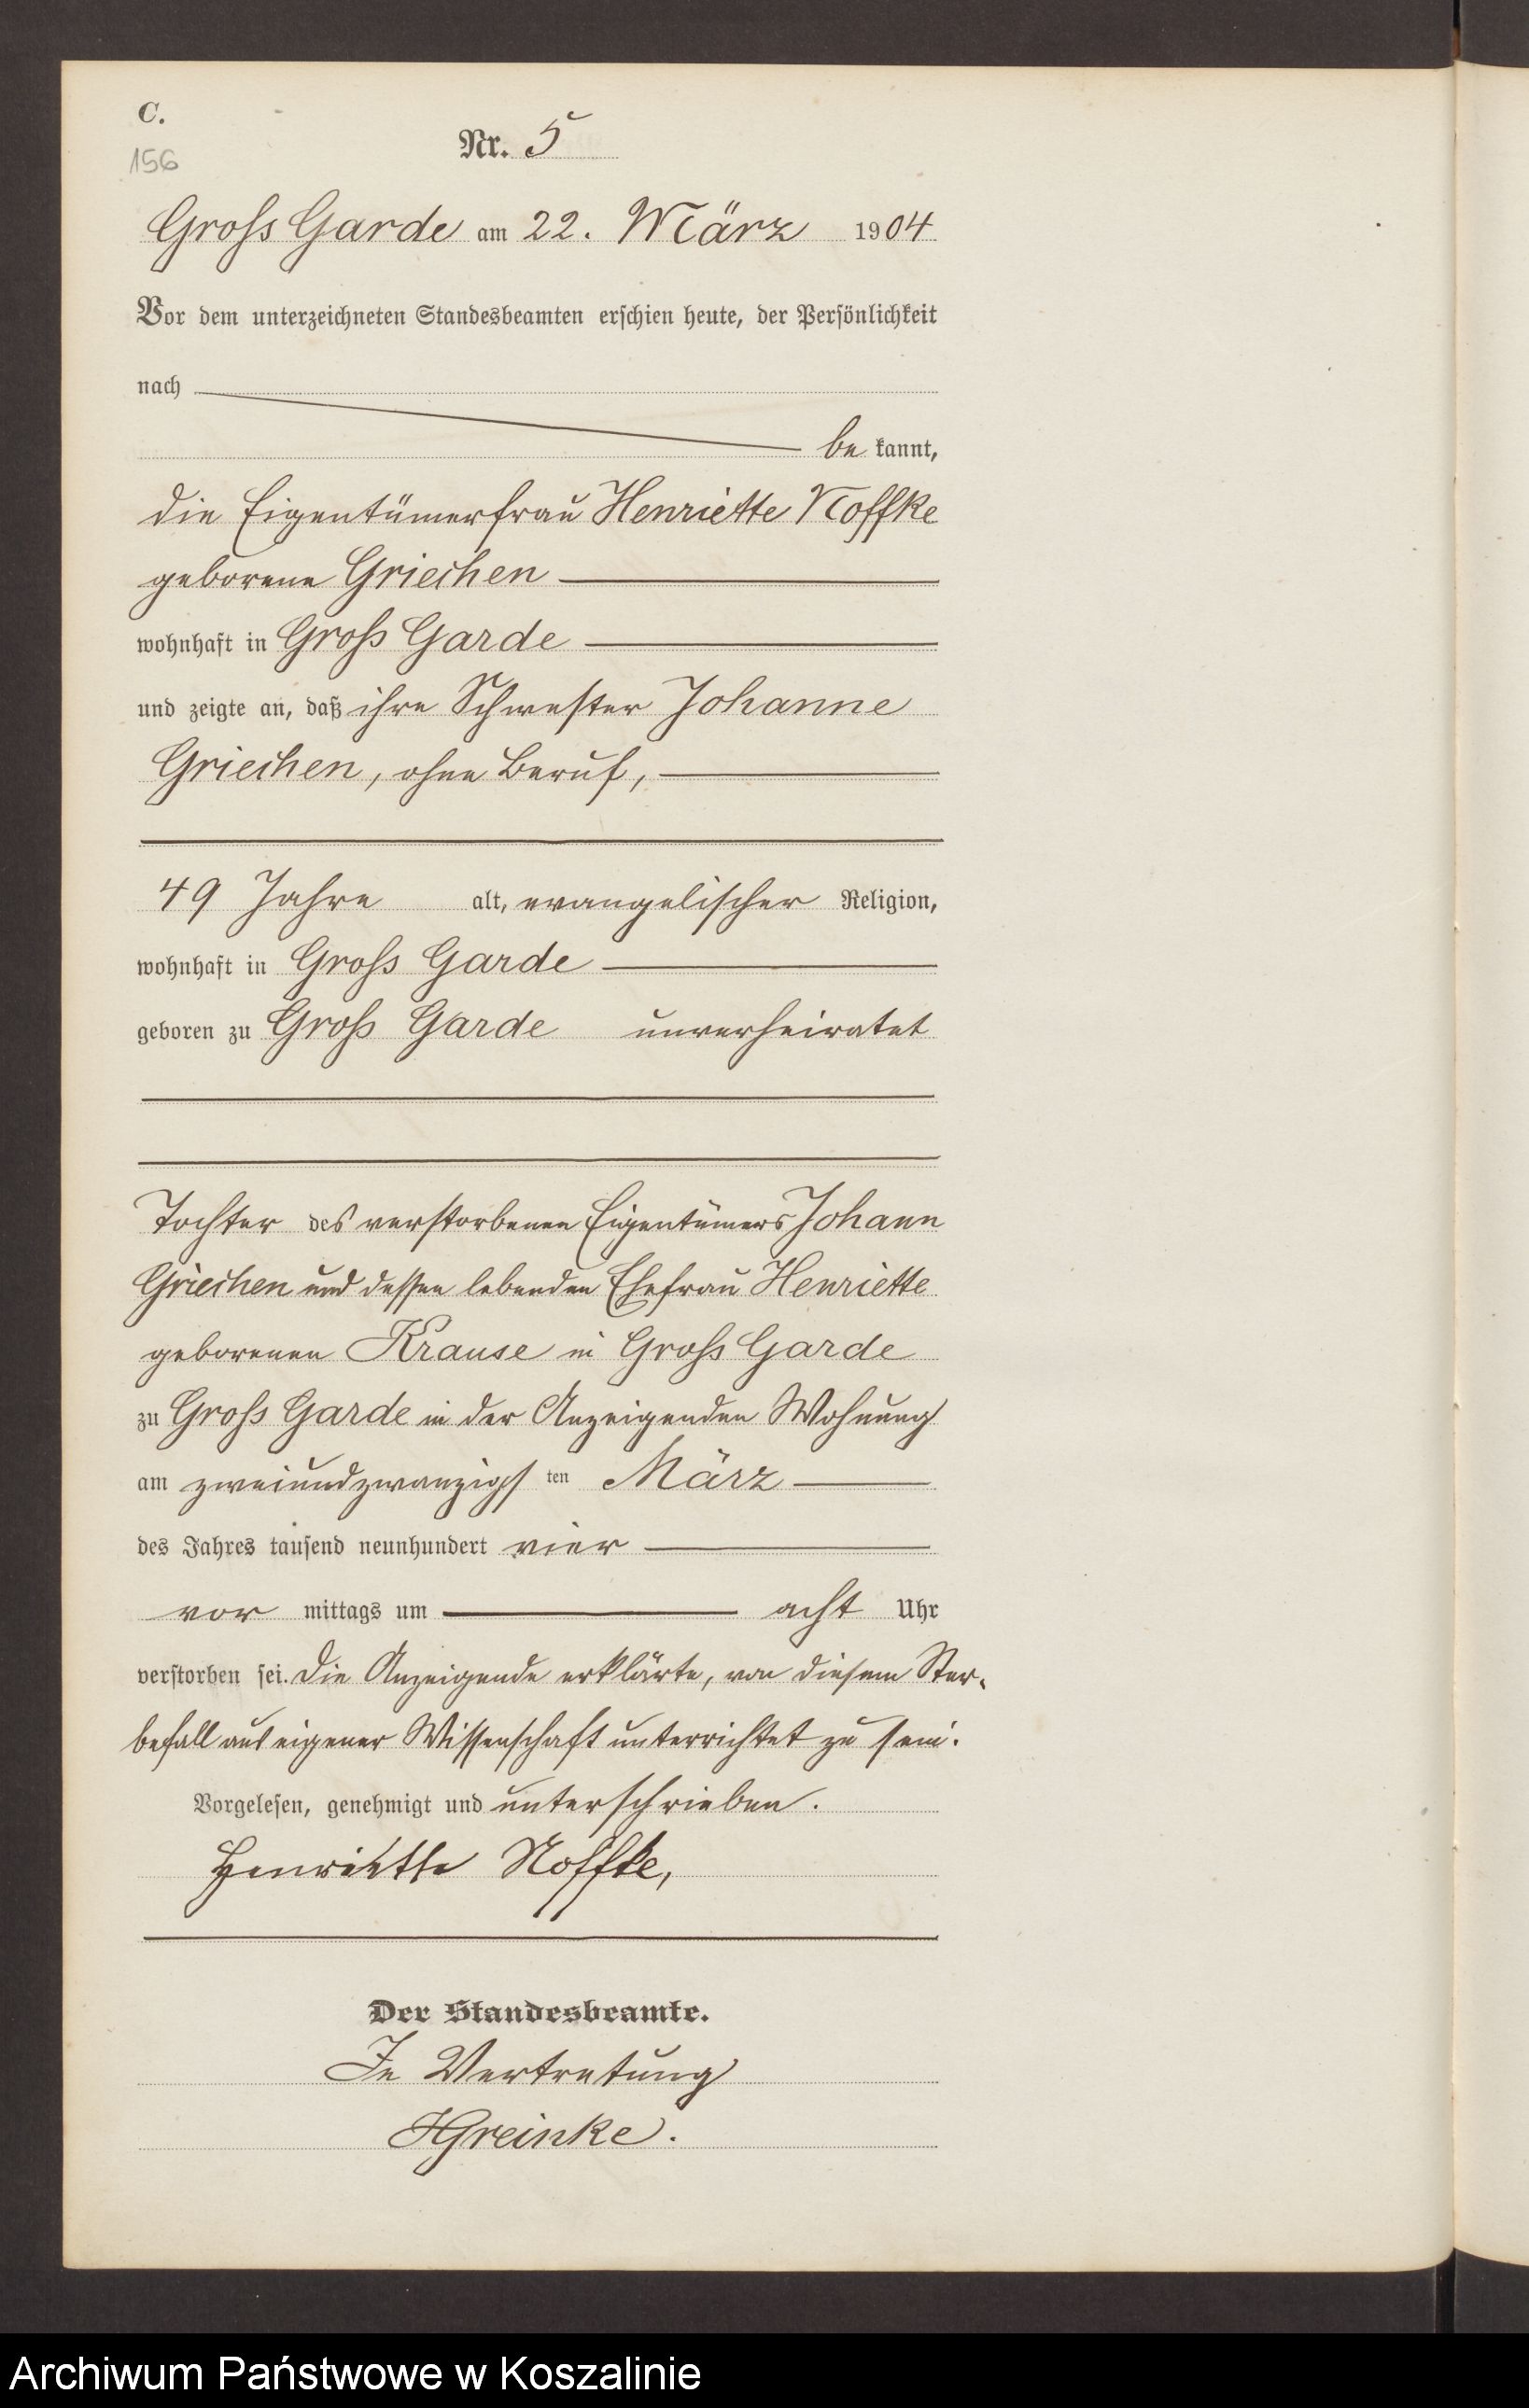 C.
156
Nr. 5
Gross Garde am 22. März 1904
Vor dem unterzeichneten Standesbeamten erschien heute, der Persönlichkeit
nach
be kannt,
die Eigentümerfrau Henriette Noffke
geborene Griechen
wohnhaft in Gross Garde
und zeigte an, daß ihre Schwester Johanne
Griechen, ohne Beruf,
49 Jahre alt, evangelischer Religion,
wohnhaft in Gross Garde
geboren zu Gross Garde unverheiratet
Tochter des verstorbenen Eigentümers Johann
Griechen und dessen lebenden Ehefrau Henriette
geborenen Krause in Gross Garde
zu Gross Garde in der Anzeigenden Wohnung
am zweiundzwanzigsten März
des Jahres tausend neunhundert vier
vor mittags um acht Uhr
verstorben sei. Die Anzeigende erklärte, von diesem Ster-
befall aus eigener Wissenschaft unterrichtet zu sein.
Vorgelesen, genehmigt und unterschrieben.
Henriette Noffke,
Der Standesbeamte.
In Vertretung
HGreinke.
Archiwum Państwowe w Koszalinie